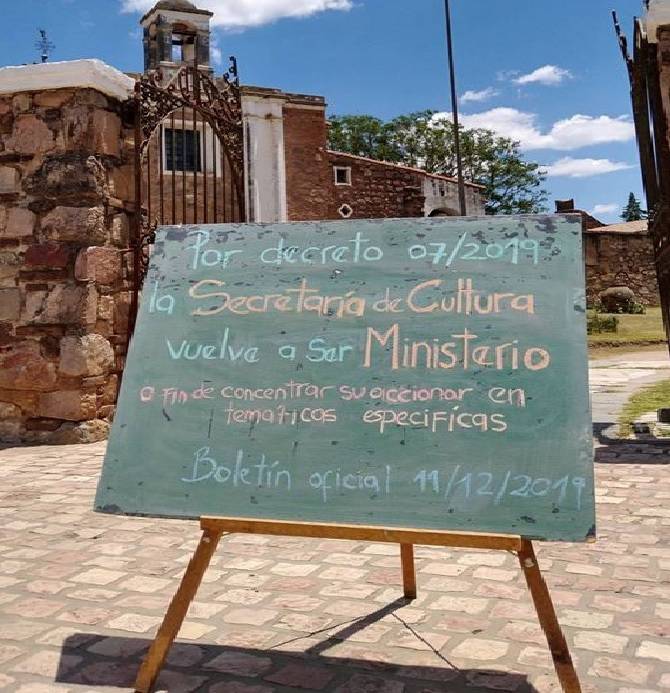 Por decreto 07/2019
la Secretaría de Cultura
vuelve a ser Ministerio
a fin de concentrar su accionar en
temáticas especificas
Boletín oficial 11/12/2019